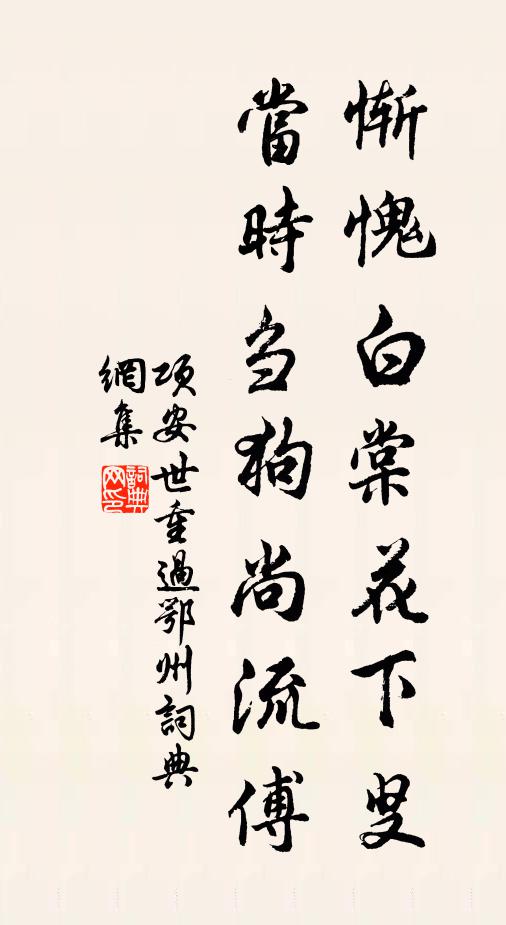 慚愧白棠花下叟
當時刍狗尚流傳
項安世重過鄂州詞典
網集
詞典
网印